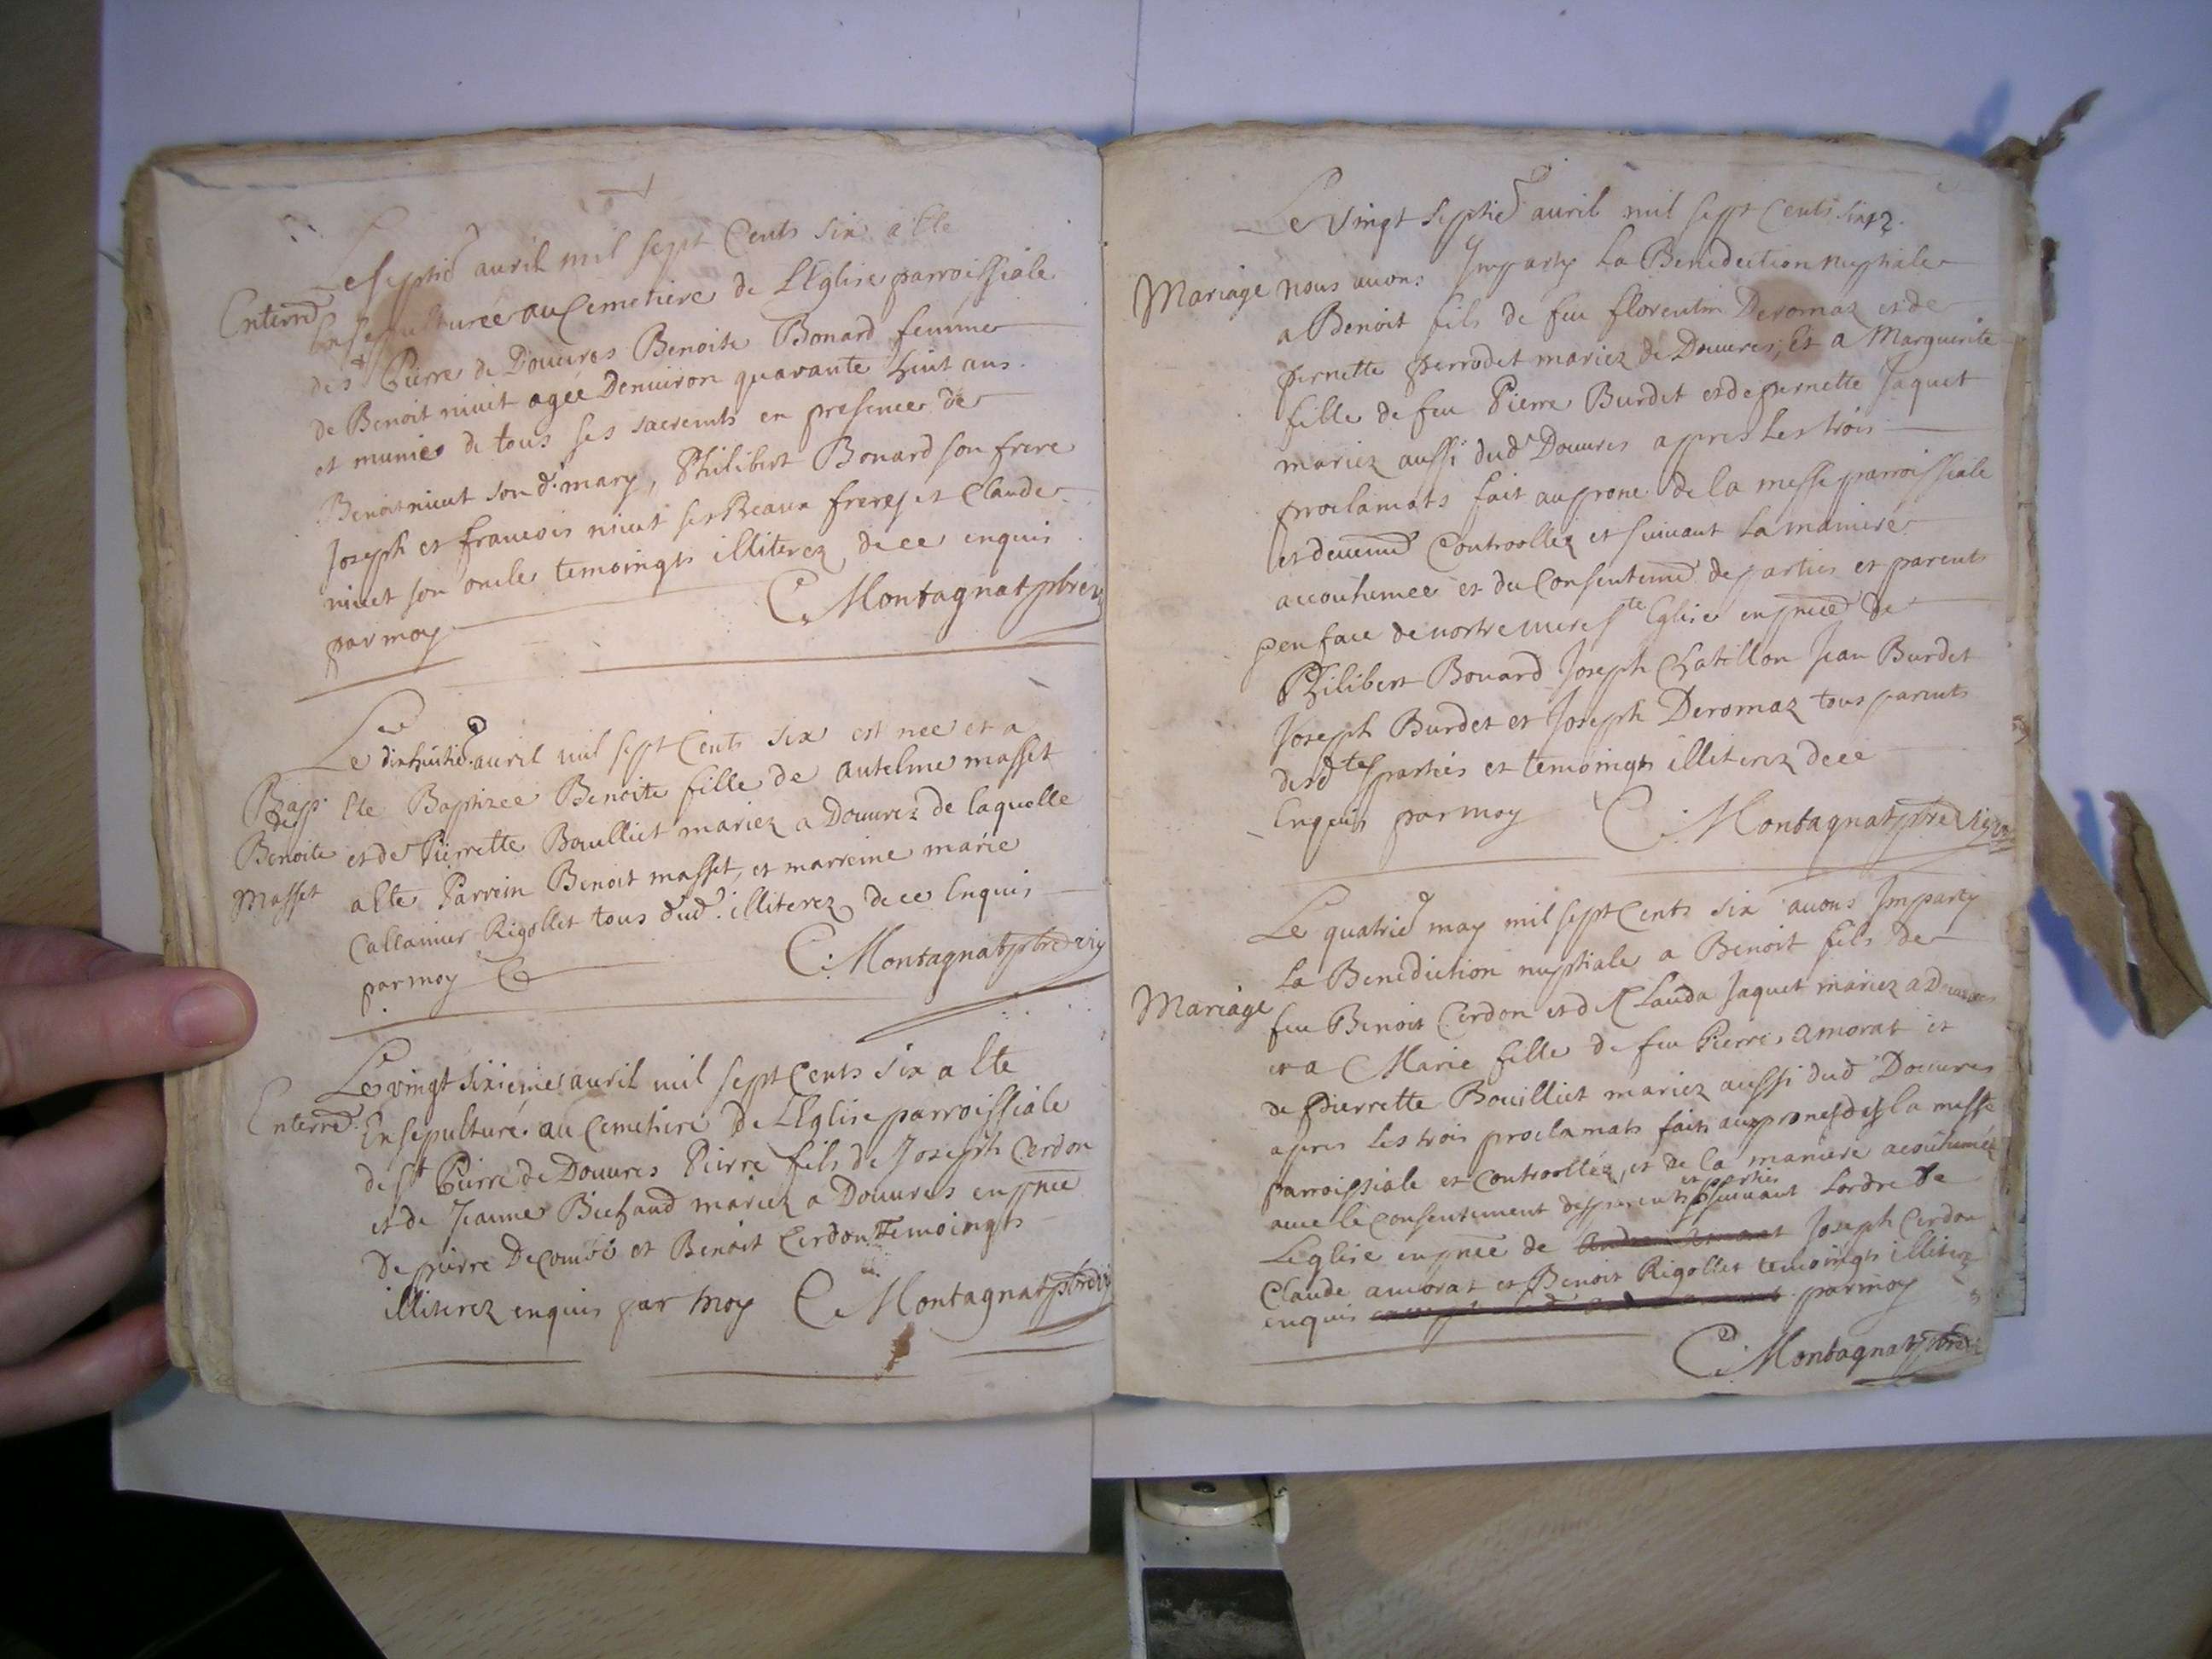 Le septie avril mil sept Cents six a Ete
Enterrt Ensepulturée au Cemetiere de L'Eglise parroissiale
de st Pierre de Douvres Benoite Bonard femme
de Benoit nivet agée Denuiron quarante huit ans.
et munies de tous ses sacremts en presence de
Benoit nivet son d. mary, Philibert Bonard son frere
Joseph et francois nivet ses Beaux freres et Claude
nivet son oncle temoingts illiterez de ce enquis
par moy C Montagnat pbre vic
Le dixhuitie avril mil sept Cents six est nee et a
Bap. Ete Baptizee Benoite fille de Antelme masset
de
Benoite et de Pierrette Boullict mariez a Douvrez de laquelle
Masset a Ete Parrein Benoit masset, et marreine marie
Callamier Rigollet tous dud. illiterez de ce Enquis
par moy C. Montagnat pbre vic
Le vingt sixieme avril mil sept Cents six a Ete
Enterrt. Ensepulturé au Cemetiere de L'Eglise parroissiale
de st Pierre de Douvres Pierre fils de Joseph Cerdon
et de Jeanne Biefaud mariez a Douvres en pnce
De pierre Decombe et Benoit Cerdon Temoingts
illiterez enquis par moy C Montagnat pbre vic
Le vingt septie avril mil sept Cents six
Mariage nous avons Imparty La Benediction nuptiale
a Benoit fils de feu florentin Deromaz et de
pernette perrodet mariez de Douvres, Et a Marguerite
fille de feu Pierre Burdet et de pernette Jaquet
mariez aussi dud Douvres apres Les trois
proclamats fait au prone de la messe parroissiale
et devemt Controollez et suivant La maniere
accoutumee et du Consentemt de parties et parents
en face de nortre mere ste Eglise en pnce de
Philibert Bonard Joseph Chatillon Jean Burdet
Joseph Burdet et Joseph Deromaz tous parents
desdtes parties et temoingts illiterez de ce
Enquis par moy C. Montagnat pbre vic
Le quatrie may mil sept Cents six avons Imparty
La Benediction nuptiale a Benoit fils de
Mariage feu Benoit Cerdon et de Clauda Jaquet mariez a Douvres
et a Marie fille de feu Pierre amorat et
de Pierrette Bouilliet mariez aussi dud Douvres
apres Les trois proclamats faits aux prones de la messe
parroissiale et Controollez, et de la maniere acoutumée
et parties
avec le Consentement des parents suivant Lordre de
L'eglise en pnce de Joseph Cerdon
Claude amorat et Benoit Rigollet temoingts illiterez
enquis par moy
C. Montagnat pbre